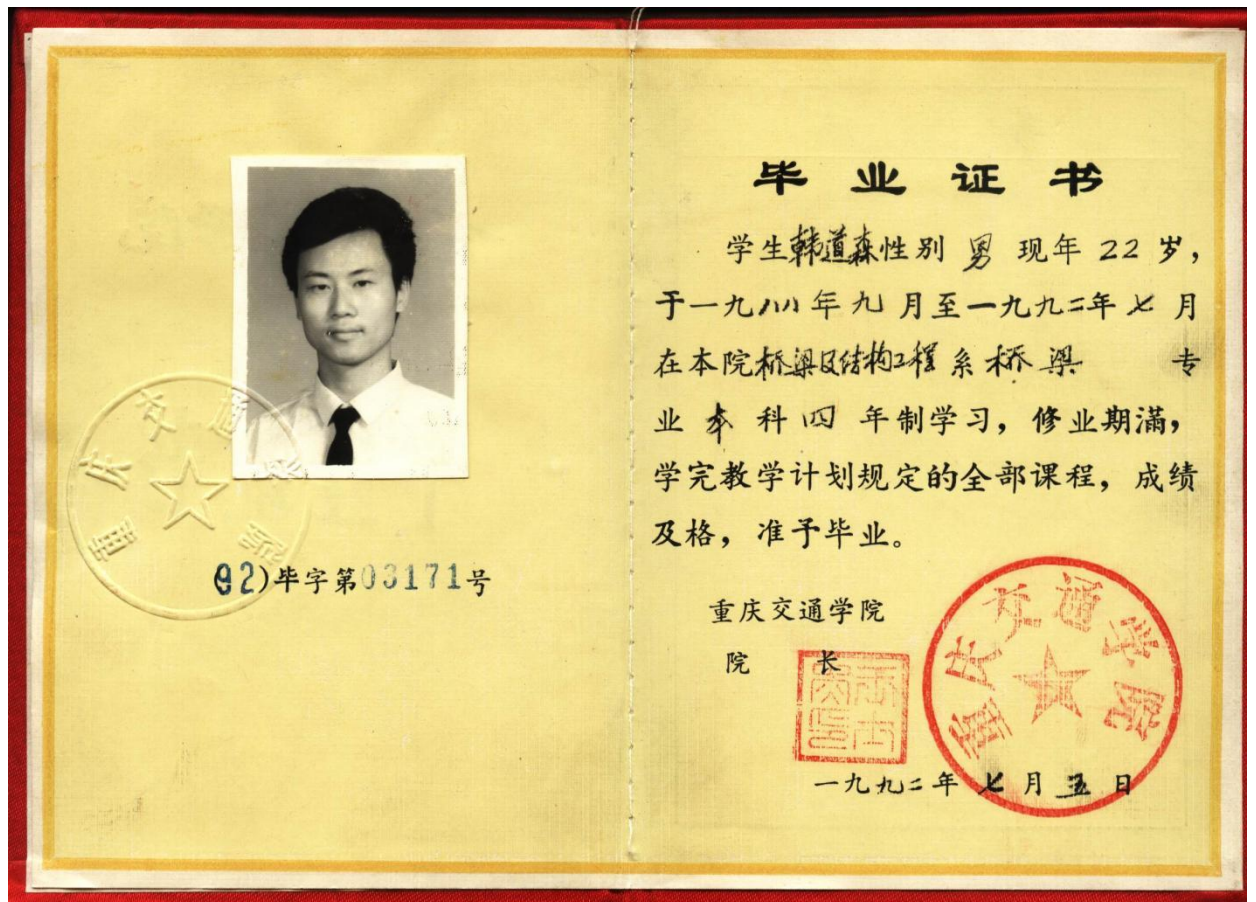 重庆交通学院
(92)毕字第03171号
毕业证书
学生韩道森性别 男 现年 22 岁，
于一九八八年九月至一九九二年七月
在本院桥梁及结构工程系桥梁 专
业 本 科 四 年制学习，修业期满，
学完教学计划规定的全部课程，成绩
及格，准予毕业。
重庆交通学院
院 长
重庆交通学院
一九九二年七月五日